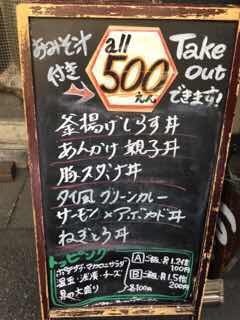 おみそ汁
付き
all
500
えん
Take
out
できます!
釜揚げしらす丼
あんかけ親子丼
豚スタミナ丼
タイ風グリーンカレー
サーモン×アボカド丼
ねぎとろ丼
トッピング
ポテサラ・マカロニサラダ
温玉・沢庵・チーズ
具の大盛り
各100円
A ごはん 1.2倍
100円
B ごはん 1.5倍
200円